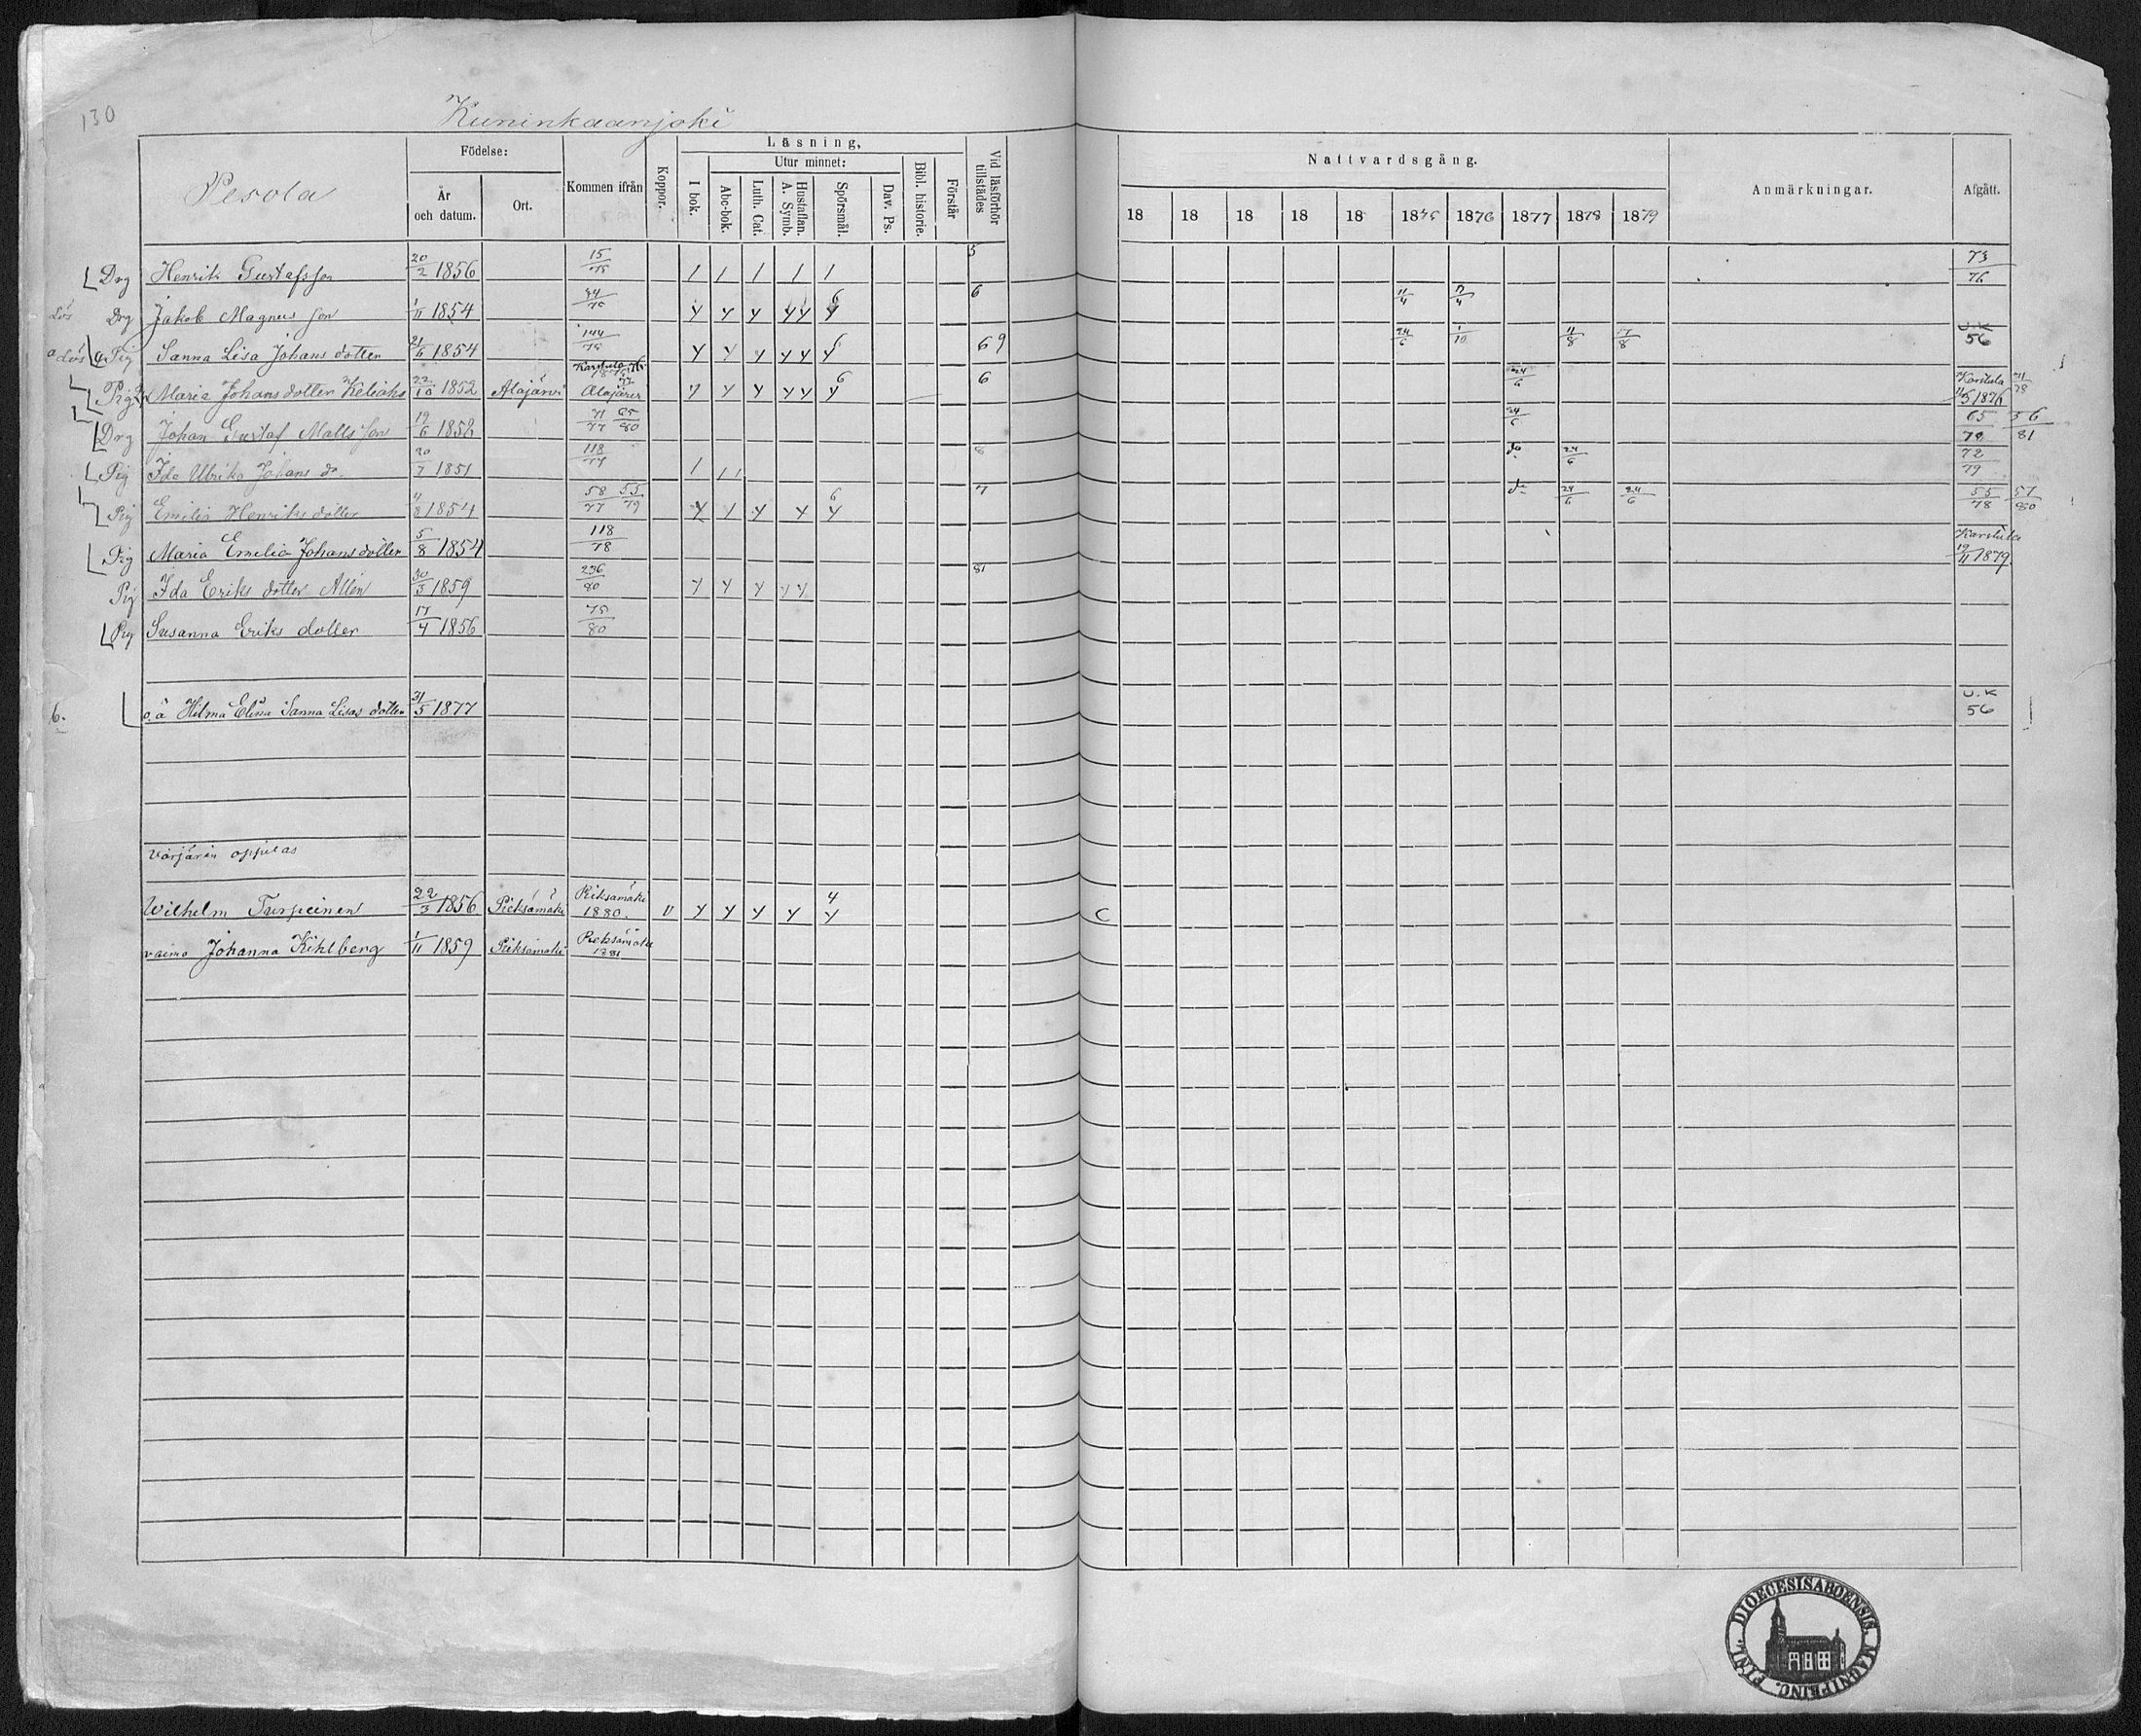 130
Kuninkaanjoki
Pesola
Födelse:
År och datum.
Ort.
Kommen ifrån
Koppor.
Läsning,
I bok.
Utur minnet:
Abc-bok.
Luth. Cat.
Hustaflan. A. Symb.
Spörsmål.
Dav. Ps.
Bibl. historie.
Förstår
Vid läsförhör tillstädes
Nattvardsgång.
18 18 18 18 18 1875 1876 1877 1878 1879
Anmärkningar.
Afgått.
Drg Henrik Gustafsson 20/2 1856 15/75 5 73/76
Lös Drg Jakob Magnus son 1/11 1854 44/75 6 6
Lös Pig Sanna Lisa Johans dotter 21/6 1854 144/75 69 24/6 1/10 11/8 17/8 U.K 56
Pig Maria Johans dotter Keliaho 22/10 1852 Alajärvi Karstula Alajärvi 6 6 24/6 Karstula 1876
Drg Johan Gustaf Matts son 19/6 1858 71/77 65/80 24/6 65/78 56/81
Pig Ida Ulrika Johans dr 20/7 1851 118/77 8 do 24/6 72/79
Pig Emilia Henriks dotter 4/8 1854 58/77 55/79 6 7 do 24/6 24/6 55/78 57/80
Pig Maria Emelia Johans dotter 5/8 1854 118/78 Karstula 19/11 1879
Pig Ida Eriks dotter Allén 30/3 1859 236/80 81
Pig Susanna Eriks dotter 17/4 1856 75/80
6. o.ä Hilma Elina Sanna Lisas dotter 31/5 1877 U.K 56
Värjärin oppilas
Wilhelm Turpeinen 22/3 1856 Pieksämäki Pieksämäki 1880. v 4 C
vaimo Johanna Kihlberg 1/11 1859 Pieksämäki Pieksämäki 1881
DIOECESIS ABOENSIS. MAGNI PRINC. FINL.